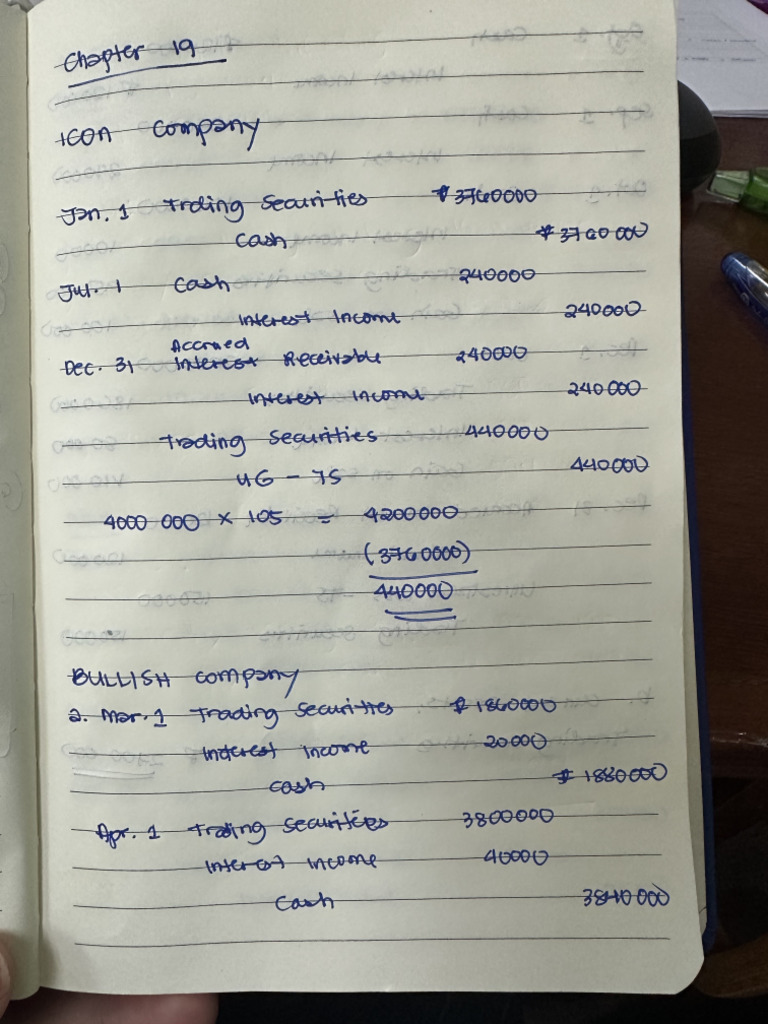 Chapter 19
ICON Company
Jan. 1 Trding Securities ₱3760000
Cash ₱3760000
Jul. 1 Cash 240000
Interest Income 240000
Accrued
Dec. 31 Interest Receivable 240000
Interest Income 240000
Trading Securities 440000
UG - TS 440000
4000 000 × 105 = 4200000
(3760000)
440000
BULLISH Company
a. Mar. 1 Trading Securities ₱1860000
Interest Income 20000
Cash ₱1880000
Apr. 1 Trading Securities 3800000
Interest Income 40000
Cash 3840000